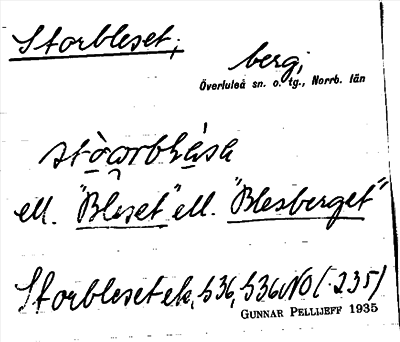 Storbleset;
berg;
Överluleå sn. o. tg., Norrb. län
ell. "Bleset" ell. "Blesberget"
Storbleset ek, S36, S36NO (·235)
GUNNAR PELLIJEFF 1935